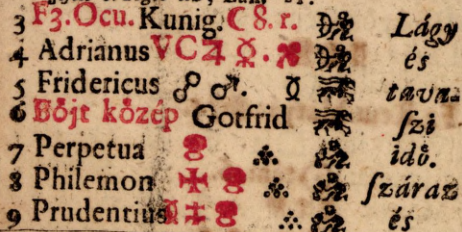 3 F3. Ocu. Kunig. ☾ 8. r. Lágy
4 Adrianus VC♃ ☿. és
5 Fridericus ☍ ♂. tava-
6 Bőjt kőzép Gotfrid ſzi
7 Perpetua idő.
8 Philemon ✠ ſzáraz
9 Prudentius ‡ és